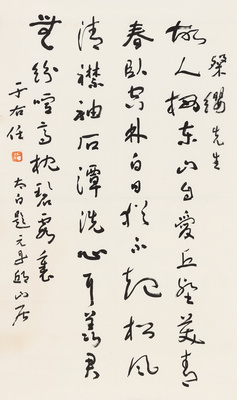 先生
故人棲東山自愛丘壑美青
春臥空林白日猶不起松風
清襟袖石潭洗心耳羨君
無紛喧高枕碧霞裏
于右任
太白題元丹邱山居